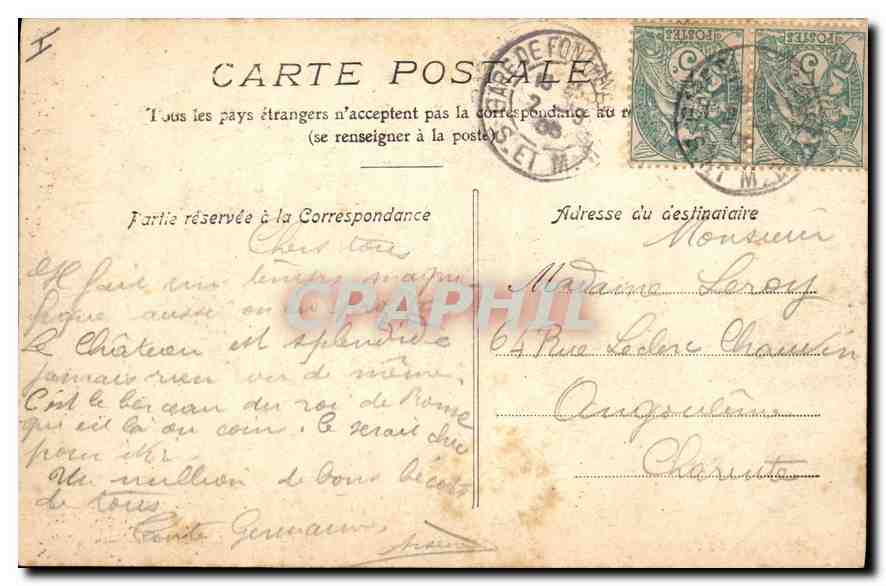 I
CARTE POSTALE
Tous les pays étrangers n'acceptent pas la correspondance au
(se renseigner à la poste)
GARE DE FONTAINEBLEAU
S. ET M.
POSTES
POSTES
5
5
Partie réservée à la Correspondance
Chers tous
Il fait un temps magni
fique aussi on en
Le Château est splendide
jamais rien vu de même.
C'est le berceau du roi de Rome
qui est là au coin. Ce serait chic
pour
Un million de bons bécots
de tous
Tante Germaine
CPAPHIL
Adresse du destinataire
Monsieur
Madame Leroy
64 Rue Leclerc Chauvin
Angoulême
Charente